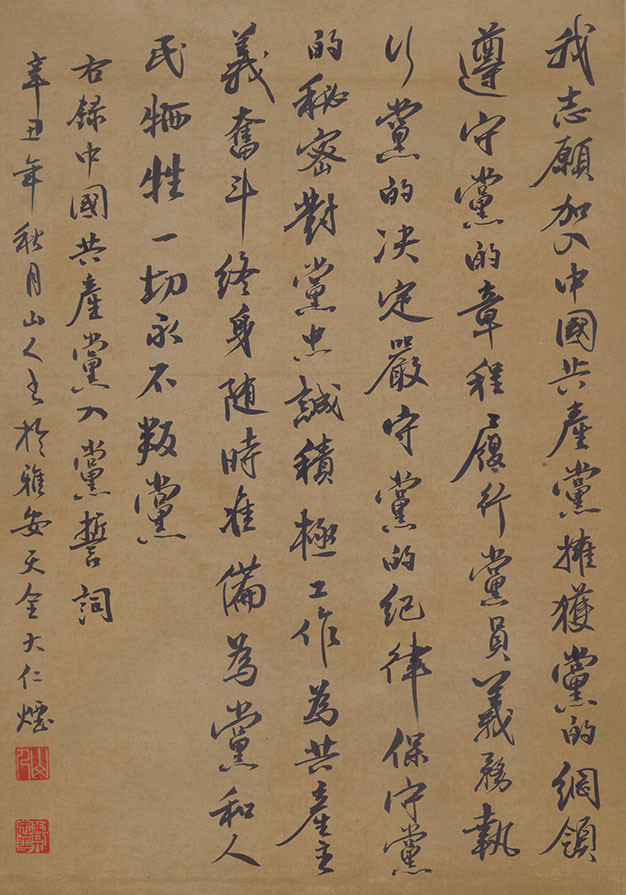 我志願加入中國共產黨擁獲黨的綱領
遵守黨的章程履行黨員義務執
行黨的决定嚴守黨的紀律保守黨
的秘密對黨忠誠積極工作為共產主
義奮斗終身随時准備為黨和人
民牺牲一切永不叛黨
右録中國共產黨入黨誓詞
辛丑年秋月山人书於雅安天全大仁煙